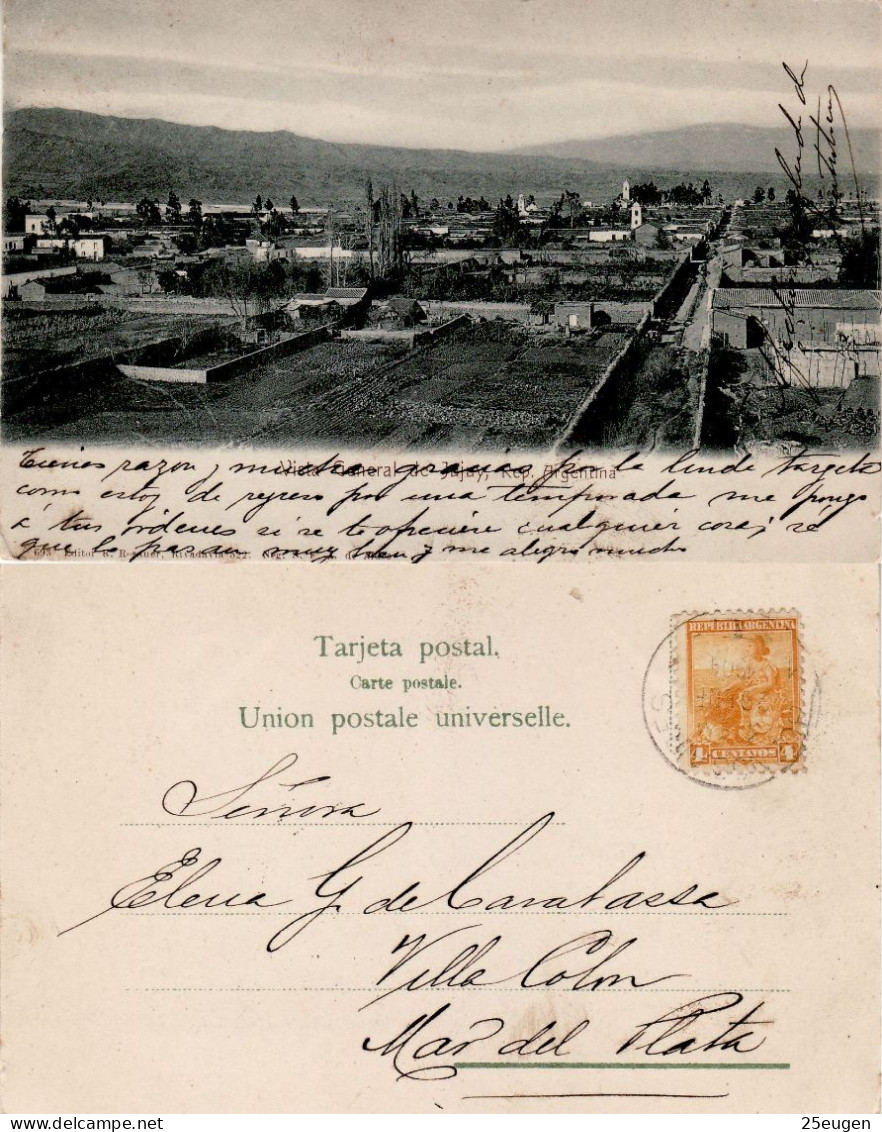 Tienes razon y muchas gracias por la linda targeta
Vista General de Jujuy, Rep. Argentina
como estoy de regreso por una temporada me pongo
á tus órdenes si se te ofreciere cualquier cosa; sé
que lo pasan muy bien y me alegro mucho
Editor R. Rosauer, Rivadavia
Tarjeta postal.
Carte postale.
Union postale universelle.
REPUBLICA ARGENTINA
4 CENTAVOS 4
Señora
Elena G. de Carabassa
Villa Colon
Mar del Plata
25eugen
delcampe.net